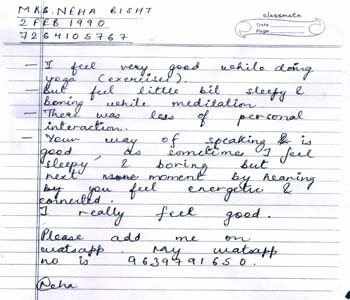 MRS. NEHA BISHT
2 FEB 1990
7264105767
classmate
Date
Page
- I feel very good while doing
yoga (exercises).
- But feel little bil sleepy &
boring while meditation.
- There was less of personal
interaction.
- Your way of speaking is
good, as sometimes I feel
sleepy & boring but
next moment by hearing
you feel energetic &
connected.
I really feel good.
Please add me on
watsapp. My watsapp
no is 9639791650.
Neha